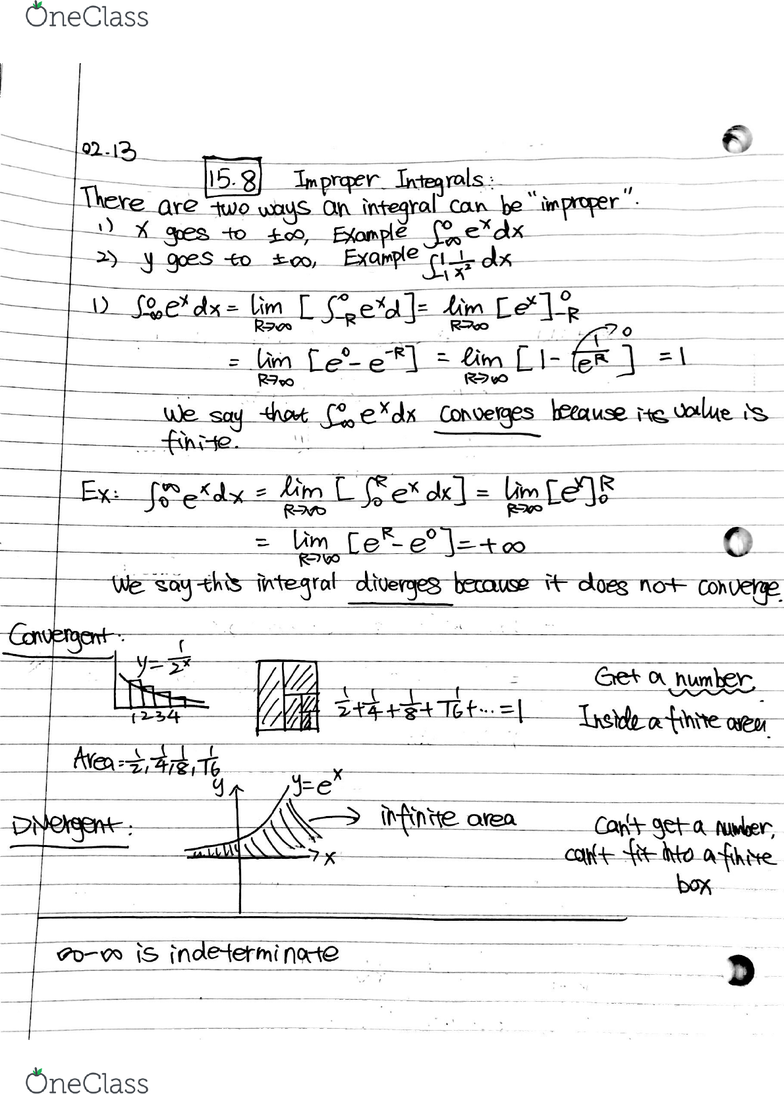 OneClass
02.13
15.8 Improper Integrals:
There are two ways an integral can be "improper".
1) x goes to ±∞, Example ∫_{-∞}^{0} e^x dx
2) y goes to ±∞, Example ∫_{-1}^{1} 1/x² dx
1) ∫_{-∞}^{0} e^x dx = lim_{R→∞} [∫_{-R}^{0} e^x d] = lim_{R→∞} [e^x]_{-R}^{0}
= lim_{R→∞} [e^0 - e^{-R}] = lim_{R→∞} [1 - 1/e^R → 0] = 1
We say that ∫_{-∞}^{0} e^x dx converges because its value is
finite.
Ex: ∫_{0}^{∞} e^x dx = lim_{R→∞} [∫_{0}^{R} e^x dx] = lim_{R→∞} [e^x]_{0}^{R}
= lim_{R→∞} [e^R - e^0] = +∞
We say this integral diverges because it does not converge.
Convergent:
y = 1/2^x
1 2 3 4
1/2 + 1/4 + 1/8 + 1/16 + ... = 1
Get a number
Inside a finite area.
Area = 1/2, 1/4, 1/8, 1/16
Divergent:
y
y = e^x
x
infinite area
Can't get a number,
can't fit into a finite
box
∞-∞ is indeterminate
OneClass